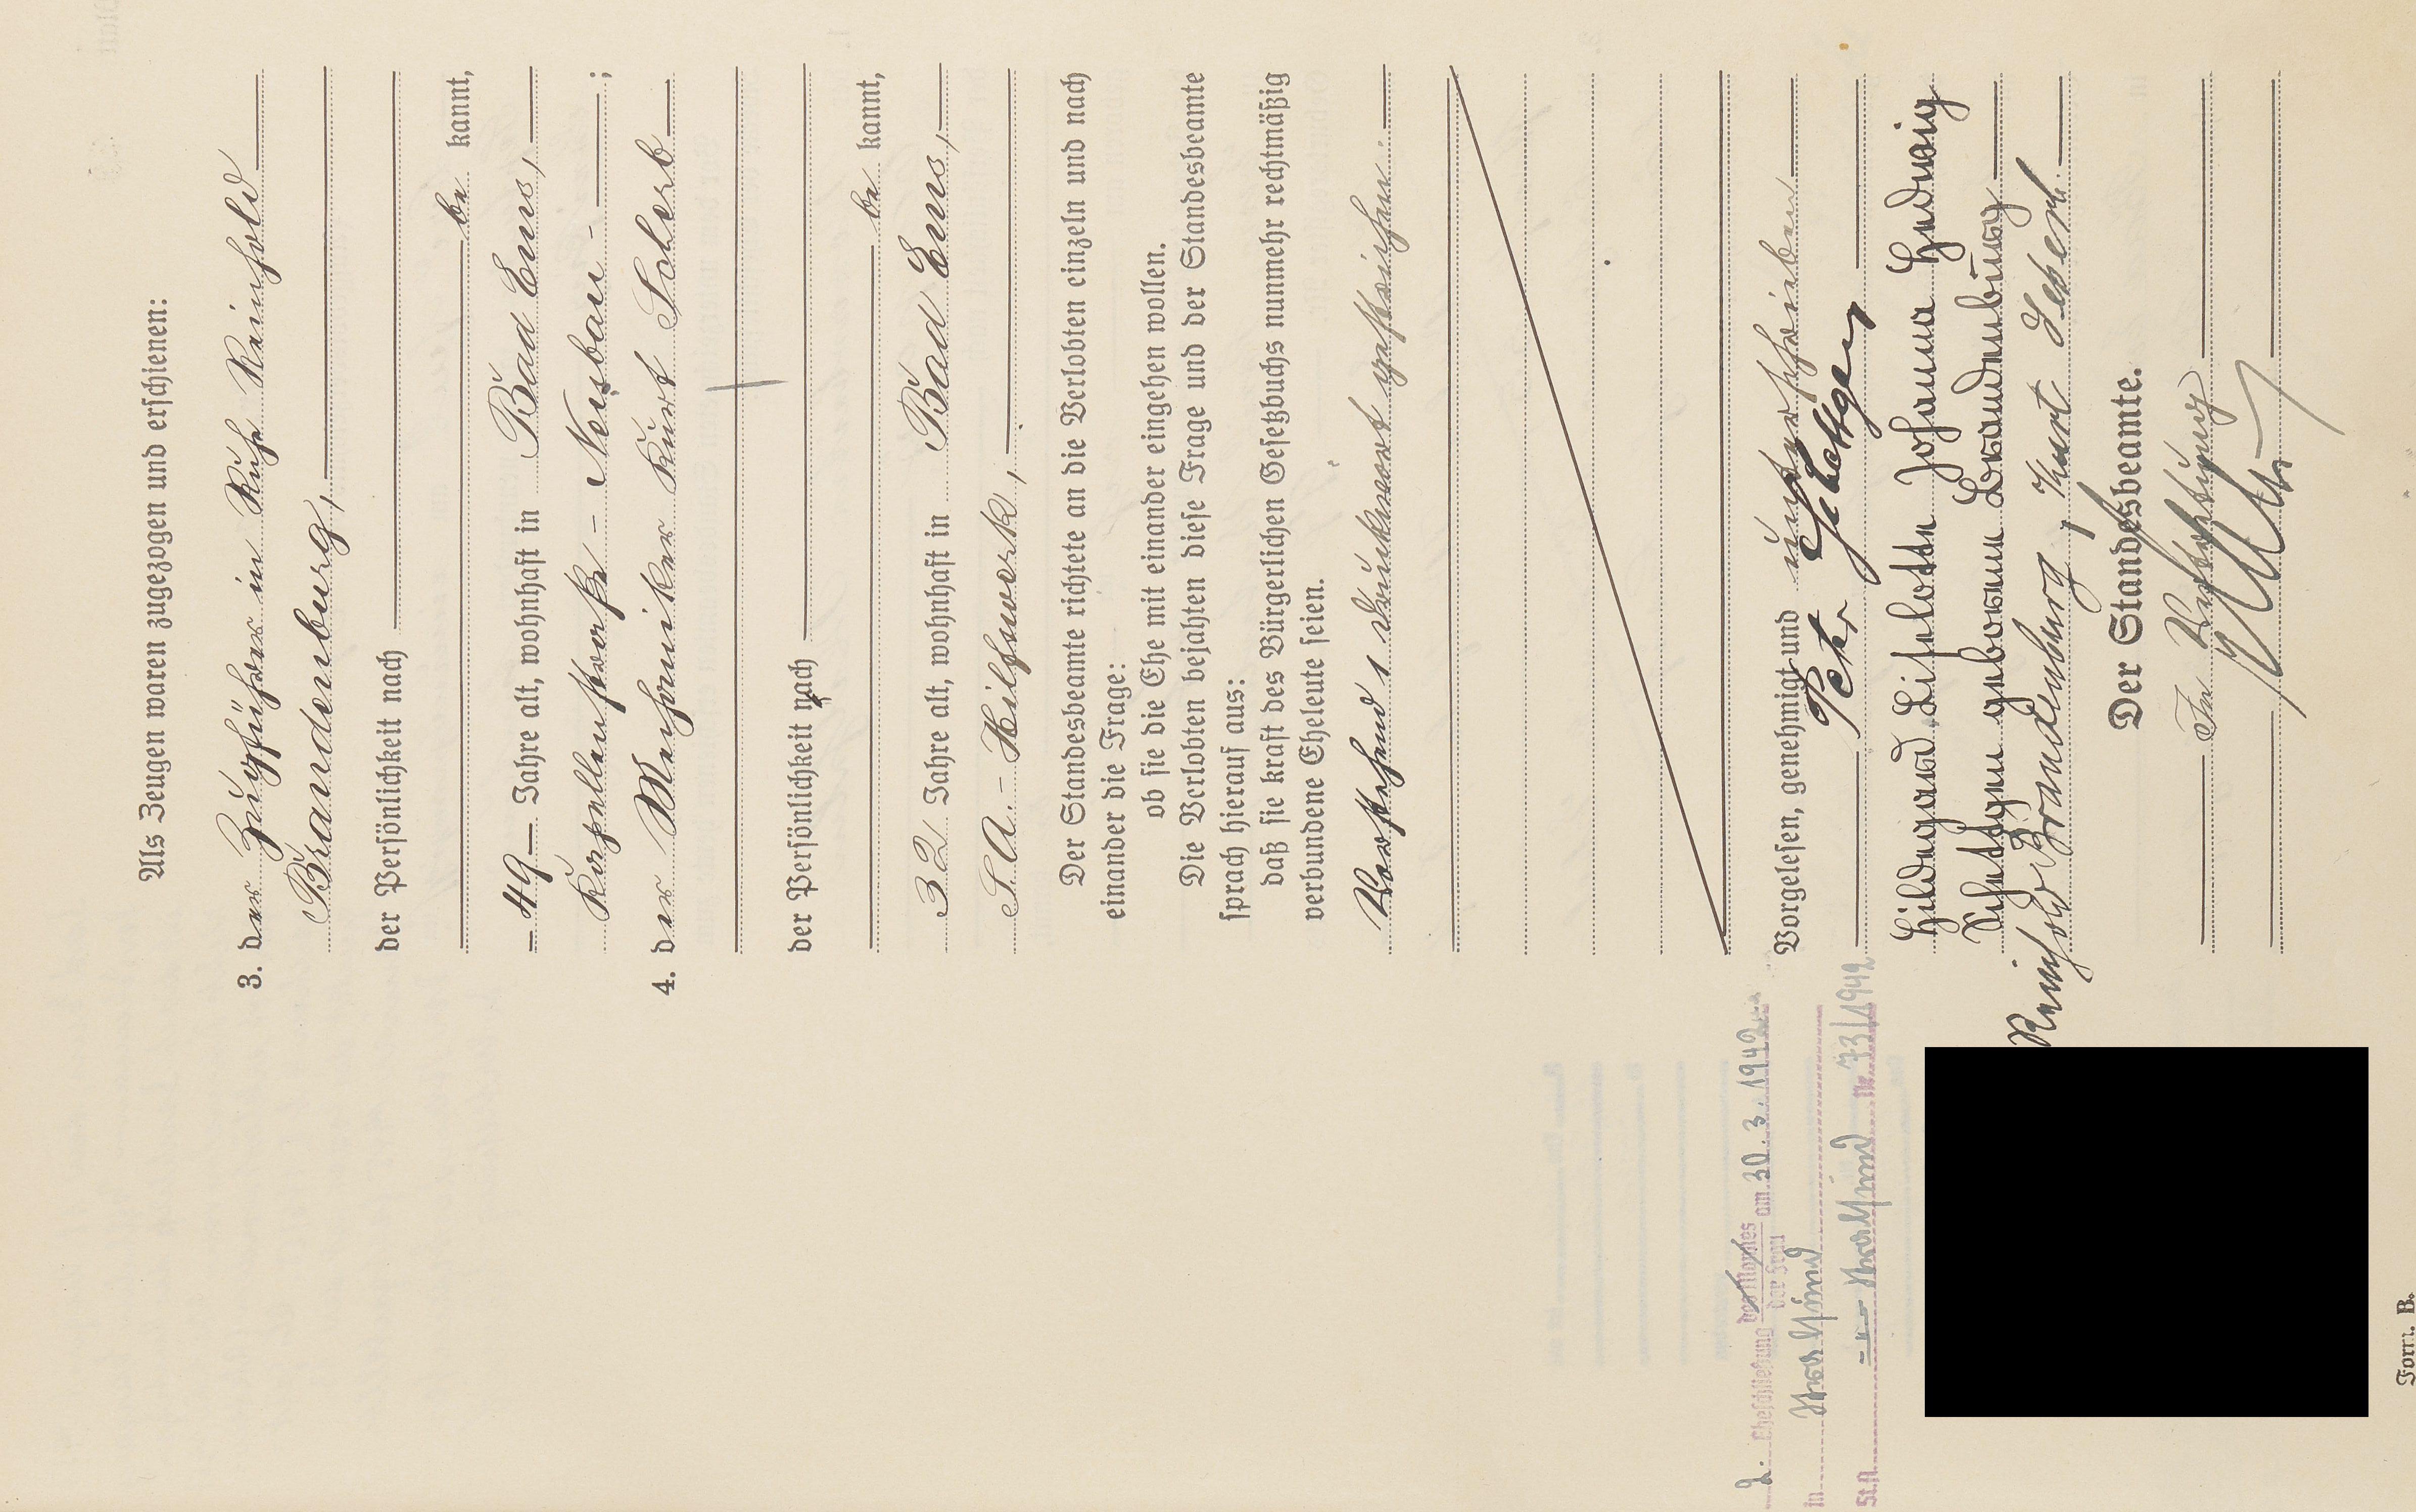 Als Zeugen waren zugezogen und erschienen:
3. der Zugführer in Ruhe Reinhold
Brandenburg,
der Persönlichkeit nach
be kannt,
- 49 - Jahre alt, wohnhaft in Bad Ems,
- Neubau - ;
4. der Mechaniker Kurt
der Persönlichkeit nach
be kannt,
32 Jahre alt, wohnhaft in Bad Ems,
S.A. - Hilfswerk,
Der Standesbeamte richtete an die Verlobten einzeln und nach
einander die Frage:
ob sie die Ehe mit einander eingehen wollen.
Die Verlobten bejahten diese Frage und der Standesbeamte
sprach hierauf aus:
daß sie kraft des Bürgerlichen Gesetzbuchs nunmehr rechtmäßig
verbundene Eheleute seien.
Vorstehend 1 Druckwort gestrichen.
Vorgelesen, genehmigt und unterschrieben
Peter
Hildegard Liselotte Johanna Hedwig
geborene Brandenburg
Reinhold Brandenburg, Kurt
Der Standesbeamte.
In Vertretung
2. Eheschließung des Mannes am 30.3.1942
der Frau
in Stralsund
St.A. Stralsund Nr. 73/1942
Form. B.